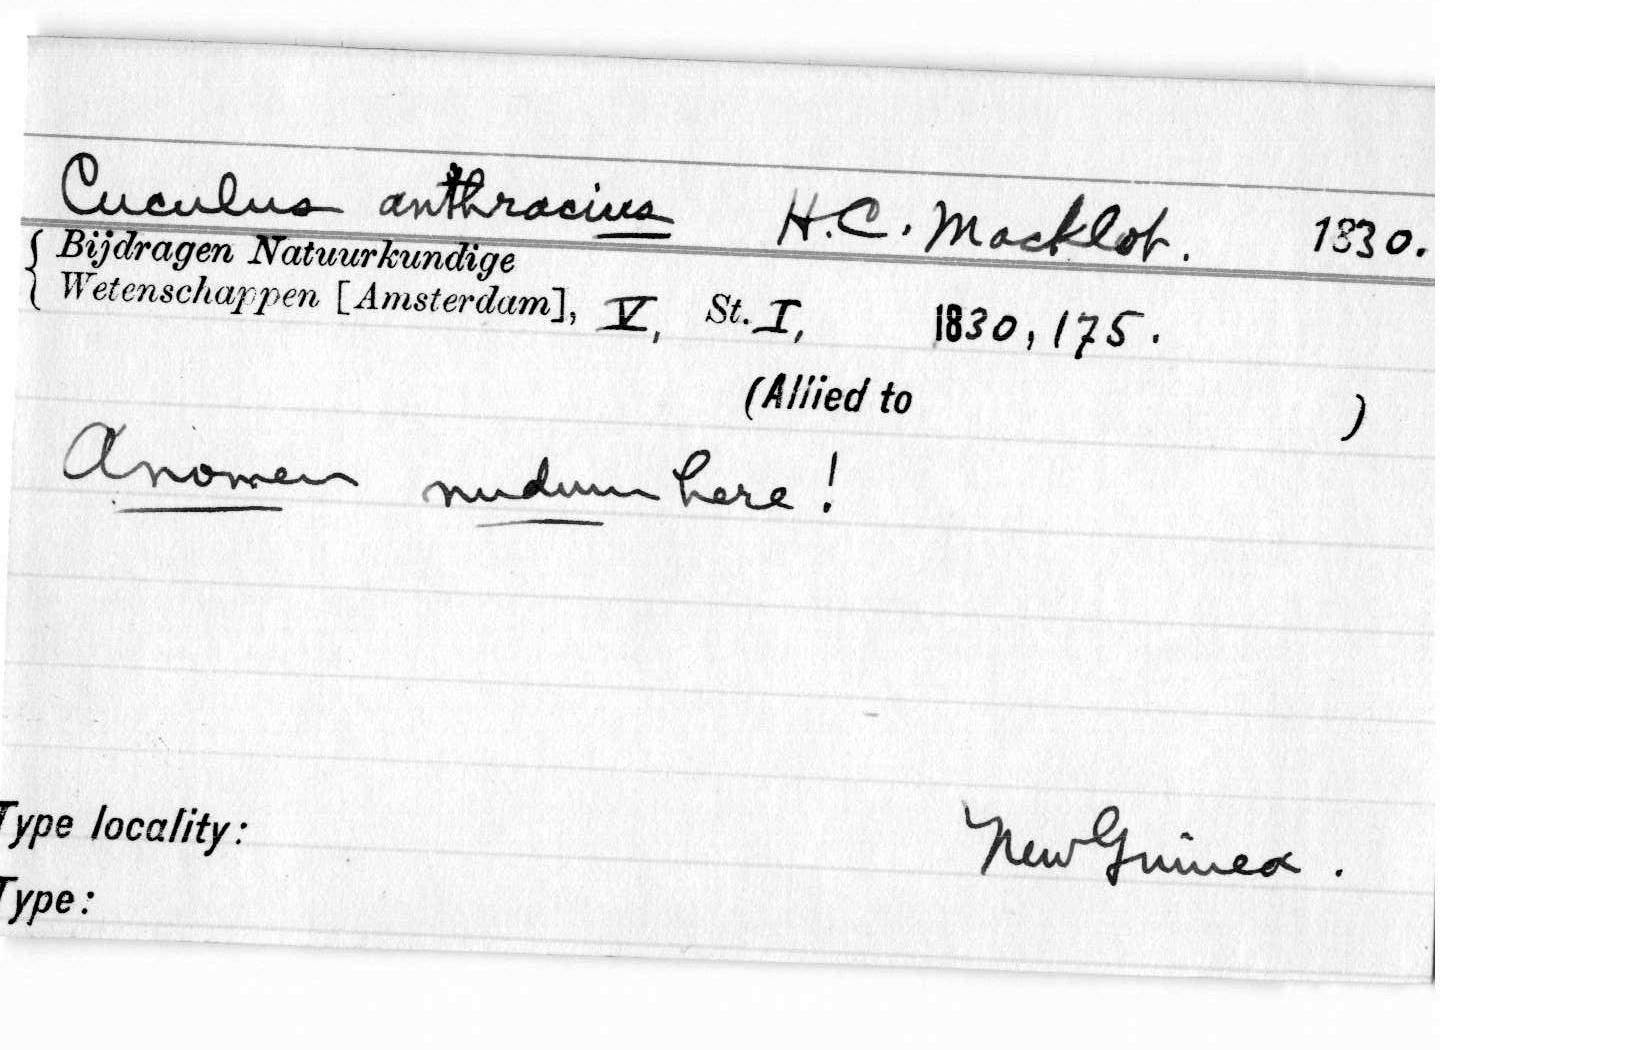 Cuculus anthracius H.C. Macklot. 1830.
Bijdragen Natuurkundige
Wetenschappen [Amsterdam], V, St. I, 1830, 175.
(Allied to )
A nomen nudum here!
Type locality: New Guinea.
Type: